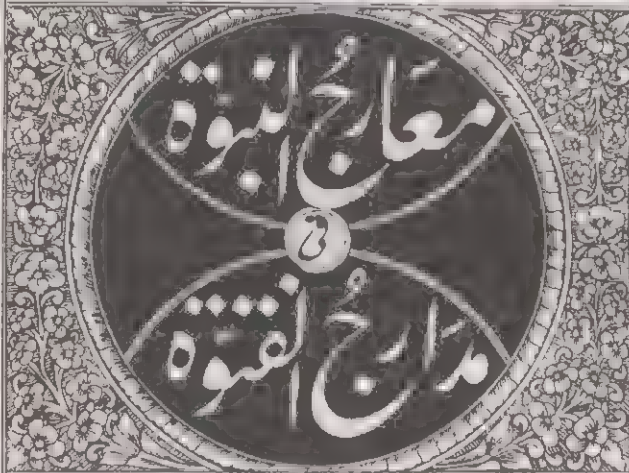 مَعَارجُ النبوّة
فی
مدَارجُ الفتوّة